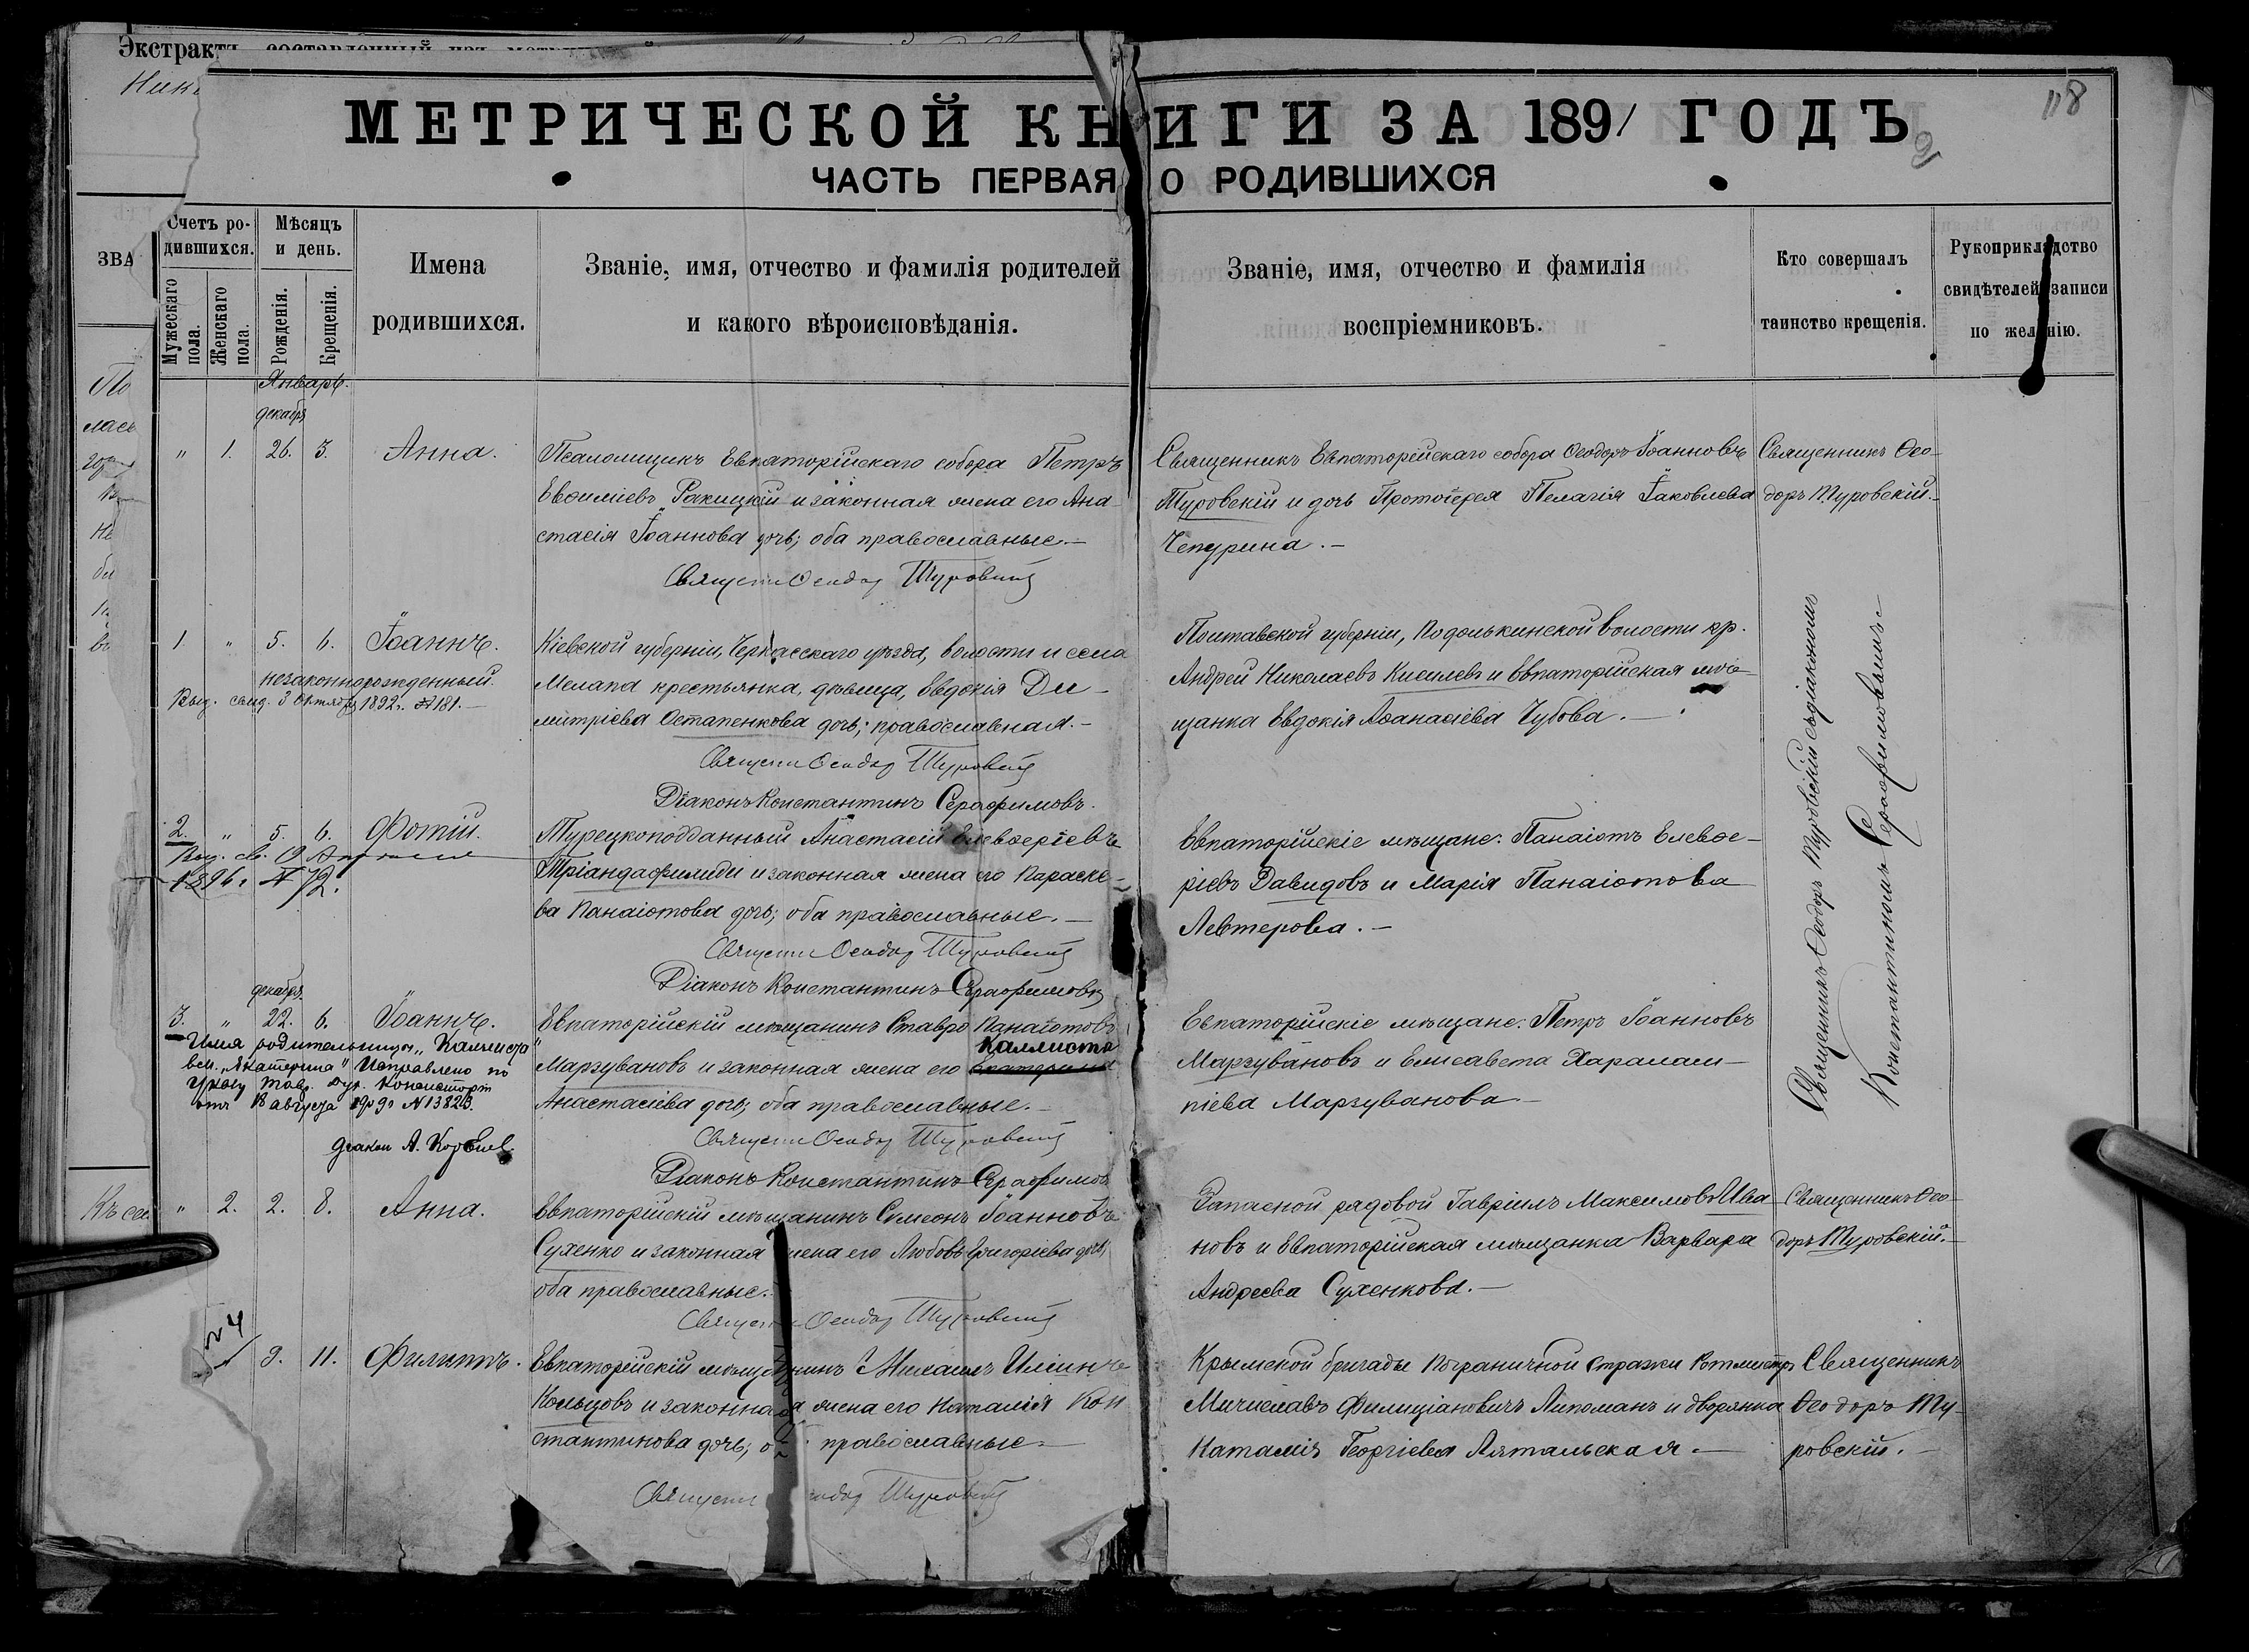 Экстрактъ составленный изъ
Ник
118
МЕТРИЧЕСКОЙ КНИГИ ЗА 1891 ГОДЪ
2
ЧАСТЬ ПЕРВАЯ О РОДИВШИХСЯ
ЗВА
Счетъ родившихся.
Мужескаго пола.
Женскаго пола.
Мѣсяцъ и день.
Рожденія.
Крещенія.
Имена родившихся.
Званіе, имя, отчество и фамилія родителей
и какого вѣроисповѣданія.
Званіе, имя, отчество и фамилія
воспріемниковъ.
Кто совершалъ
таинство крещенія.
Рукоприкладство
свидѣтелей записи
по желанію.
Январь.
декабря
" 1. 26. 3. Анна.
Псаломщикъ Евпаторійскаго собора Петръ
Евѳиміевъ Ракицкій и законная жена его Ана-
стасія Іоаннова дочь; оба православные.—
Священн Ѳеодор Туровский
Священникъ Евпаторійскаго собора Ѳеодоръ Іоанновъ
Туровскій и дочь Протоіерея Пелагія Іаковлева
Чепурина.—
Священникъ Ѳео-
доръ Туровскій.—
1. " 5. 6. Іоаннъ.
незаконнорожденный.
Выд. свид. 3 Октября 1892г. № 181.—
Кіевской губерніи, Черкасскаго уѣзда, волости и села
Мелапа крестьянка, дѣвица, Евдокія Ди-
митріева Остапенкова дочь; православная.—
Священн Ѳеодор Туровский
Діаконъ Константинъ Серафимовъ.
Полтавской губерніи, Подолькинской волости кр.
Андрей Николаевъ Киселевъ и Евпаторійская мѣ-
щанка Евдокія Аѳанасіева Чубова.—
Священникъ Ѳеодоръ Туровскій съ діакономъ
Константиномъ Серафимовымъ.
2. " 5. 6. Фотій.
Выд. св. 19 Апреля
1896г. № 72.
Турецкоподданный Анастасій Елевѳеріевъ
Тріандафилиди и законная жена его Параске-
ва Панаіотова дочь; оба православные.—
Священн Ѳеодор Туровский
Діаконъ Константинъ Серафимовъ
Евпаторійскіе мѣщане: Панаіотъ Елевѳе-
ріевъ Давидовъ и Марія Панаіотова
Левтерова.—
декабря
3. " 22. 6. Іоаннъ.
Имя родительницы „Каллиста"
вм. „Екатерина" Исправлено по
Указу Тавр. Дух. Консисторіи
отъ 18 августа 1909г № 13823.
діакон А.
Евпаторійскій мѣщанинъ Ставро Панаіотовъ
Каллиста
Марзувановъ и законная жена его Екатерина
Анастасіева дочь; оба православные.—
Священн Ѳеодор Туровский
Діаконъ Константинъ Серафимовъ
Евпаторійскіе мѣщане: Петръ Іоанновъ
Марзувановъ и Елисавета Харалам-
піева Марзуванова.—
" 2. 2. 8. Анна.
Евпаторійскій мѣщанинъ Симеонъ Іоанновъ
Сухенко и законная жена его Любовь Григоріева дочь;
оба православные.
Священн Ѳеодор Туровский
Запасной рядовой Гавріилъ Максимовъ Ива-
новъ и Евпаторійская мѣщанка Варвара
Андреева Сухенкова.—
Священникъ Ѳео-
доръ Туровскій.—
№ 4
9. 11. Филиппъ.
Евпаторійскій мѣщанинъ Михаилъ Иліинъ
Кольцовъ и законная жена его Наталія Кон-
стантинова дочь; о православные.—
Священн Ѳеодор Туровский
Крымской бригады Пограничной Стражи Ротмистръ
Мичиславъ Филиціановичъ Липоманъ и дворянка
Наталія Георгіева Ялтальская.—
Священникъ
Ѳеодоръ Ту-
ровскій.—